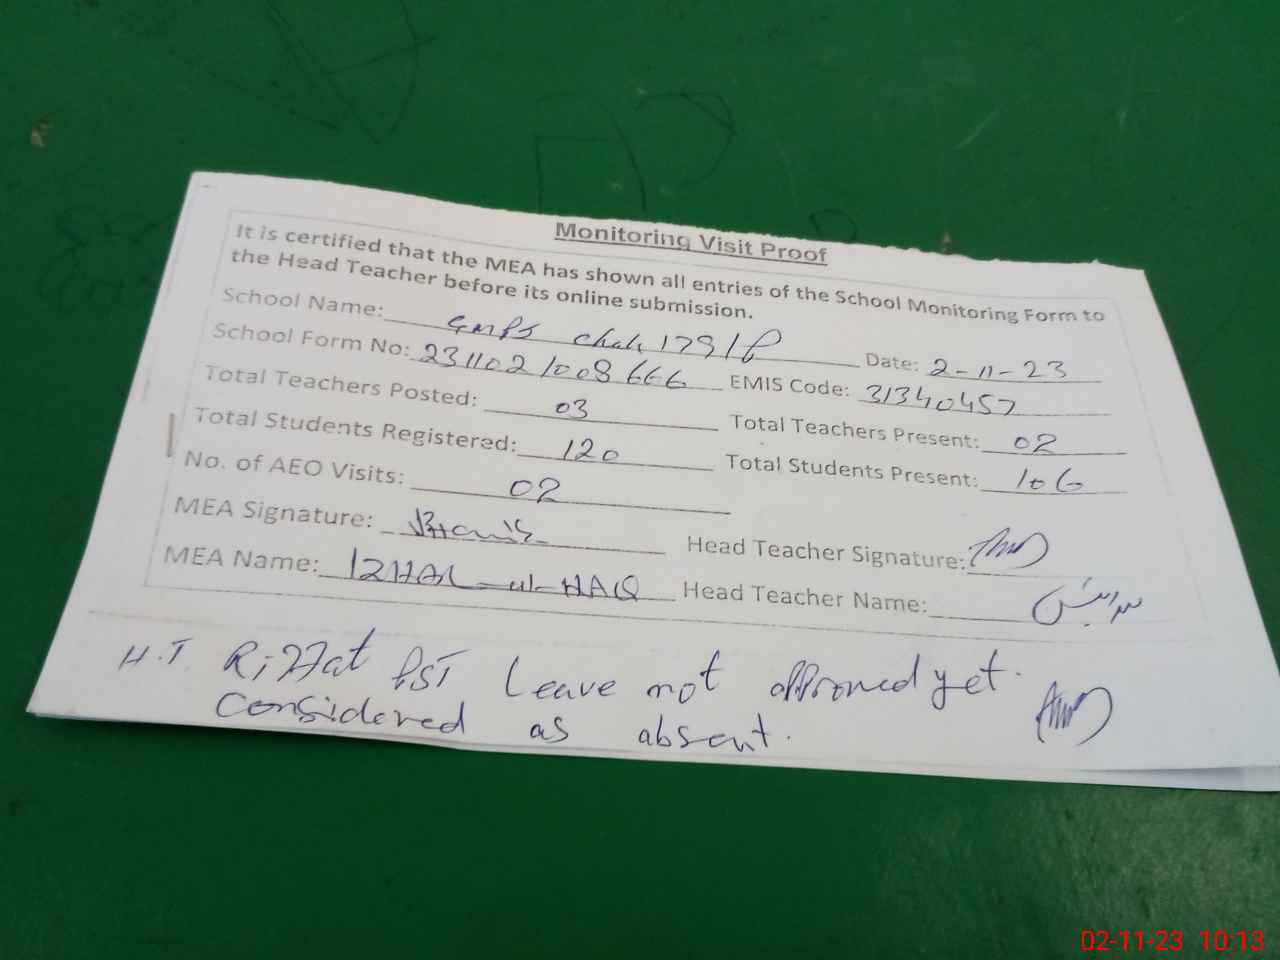 Monitoring Visit Proof
It is certified that the MEA has shown all entries of the School Monitoring Form to
the Head Teacher before its online submission.
School Name: GMPS Chak 179/P Date: 2-11-23
School Form No: 231102 1008666 EMIS Code: 31340457
Total Teachers Posted: 03 Total Teachers Present: 02
Total Students Registered: 120 Total Students Present: 106
No. of AEO Visits: 02
MEA Signature: Head Teacher Signature:
MEA Name: IZHAR-ul-HAQ Head Teacher Name:
H.T. Riffat PST Leave not approved yet.
Considered as absent.
02-11-23 10:13